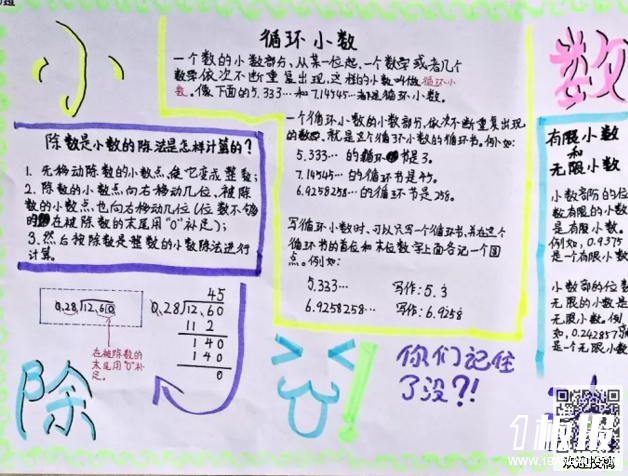 小
循环小数
一个数的小数部分，从某一位起，一个数字或者几个
数字依次不断重复出现，这样的小数叫做循环小
数。像下面的5.333…和7.14545…都是循环小数。
一个循环小数的小数部分，依次不断重复出现
的数，就是这个循环小数的循环节。例如：
5.333…的循环节是3。
7.14545…的循环节是45。
6.9258258…的循环节是258。
写循环小数时，可以只写一个循环节，并在这个
循环节的首位和末位数字上面各记一个圆
点。例如：
5.333… 写作：5.3̇
6.9258258… 写作：6.92̇58̇
除数是小数的除法是怎样计算的？
1. 先移动除数的小数点，使它变成整数；
2. 除数的小数点向右移动几位，被除
数的小数点也向右移动几位（位数不够
的在被除数的末尾用“0”补足）；
3. 然后按除数是整数的小数除法进行
计算。
0.28 12.60
在被除数的
末尾用“0”补
足。
45
0.28 12.60
112
140
140
0
除
你们记住
了没？！
数
有限小数
和
无限小数
小数部分的位
数有限的小数
是有限小数。
例如，0.9375
是一个有限小数
小数部的位数
无限的小数是
无限小数。例
如，0.242857
是一个无限小数
1板报